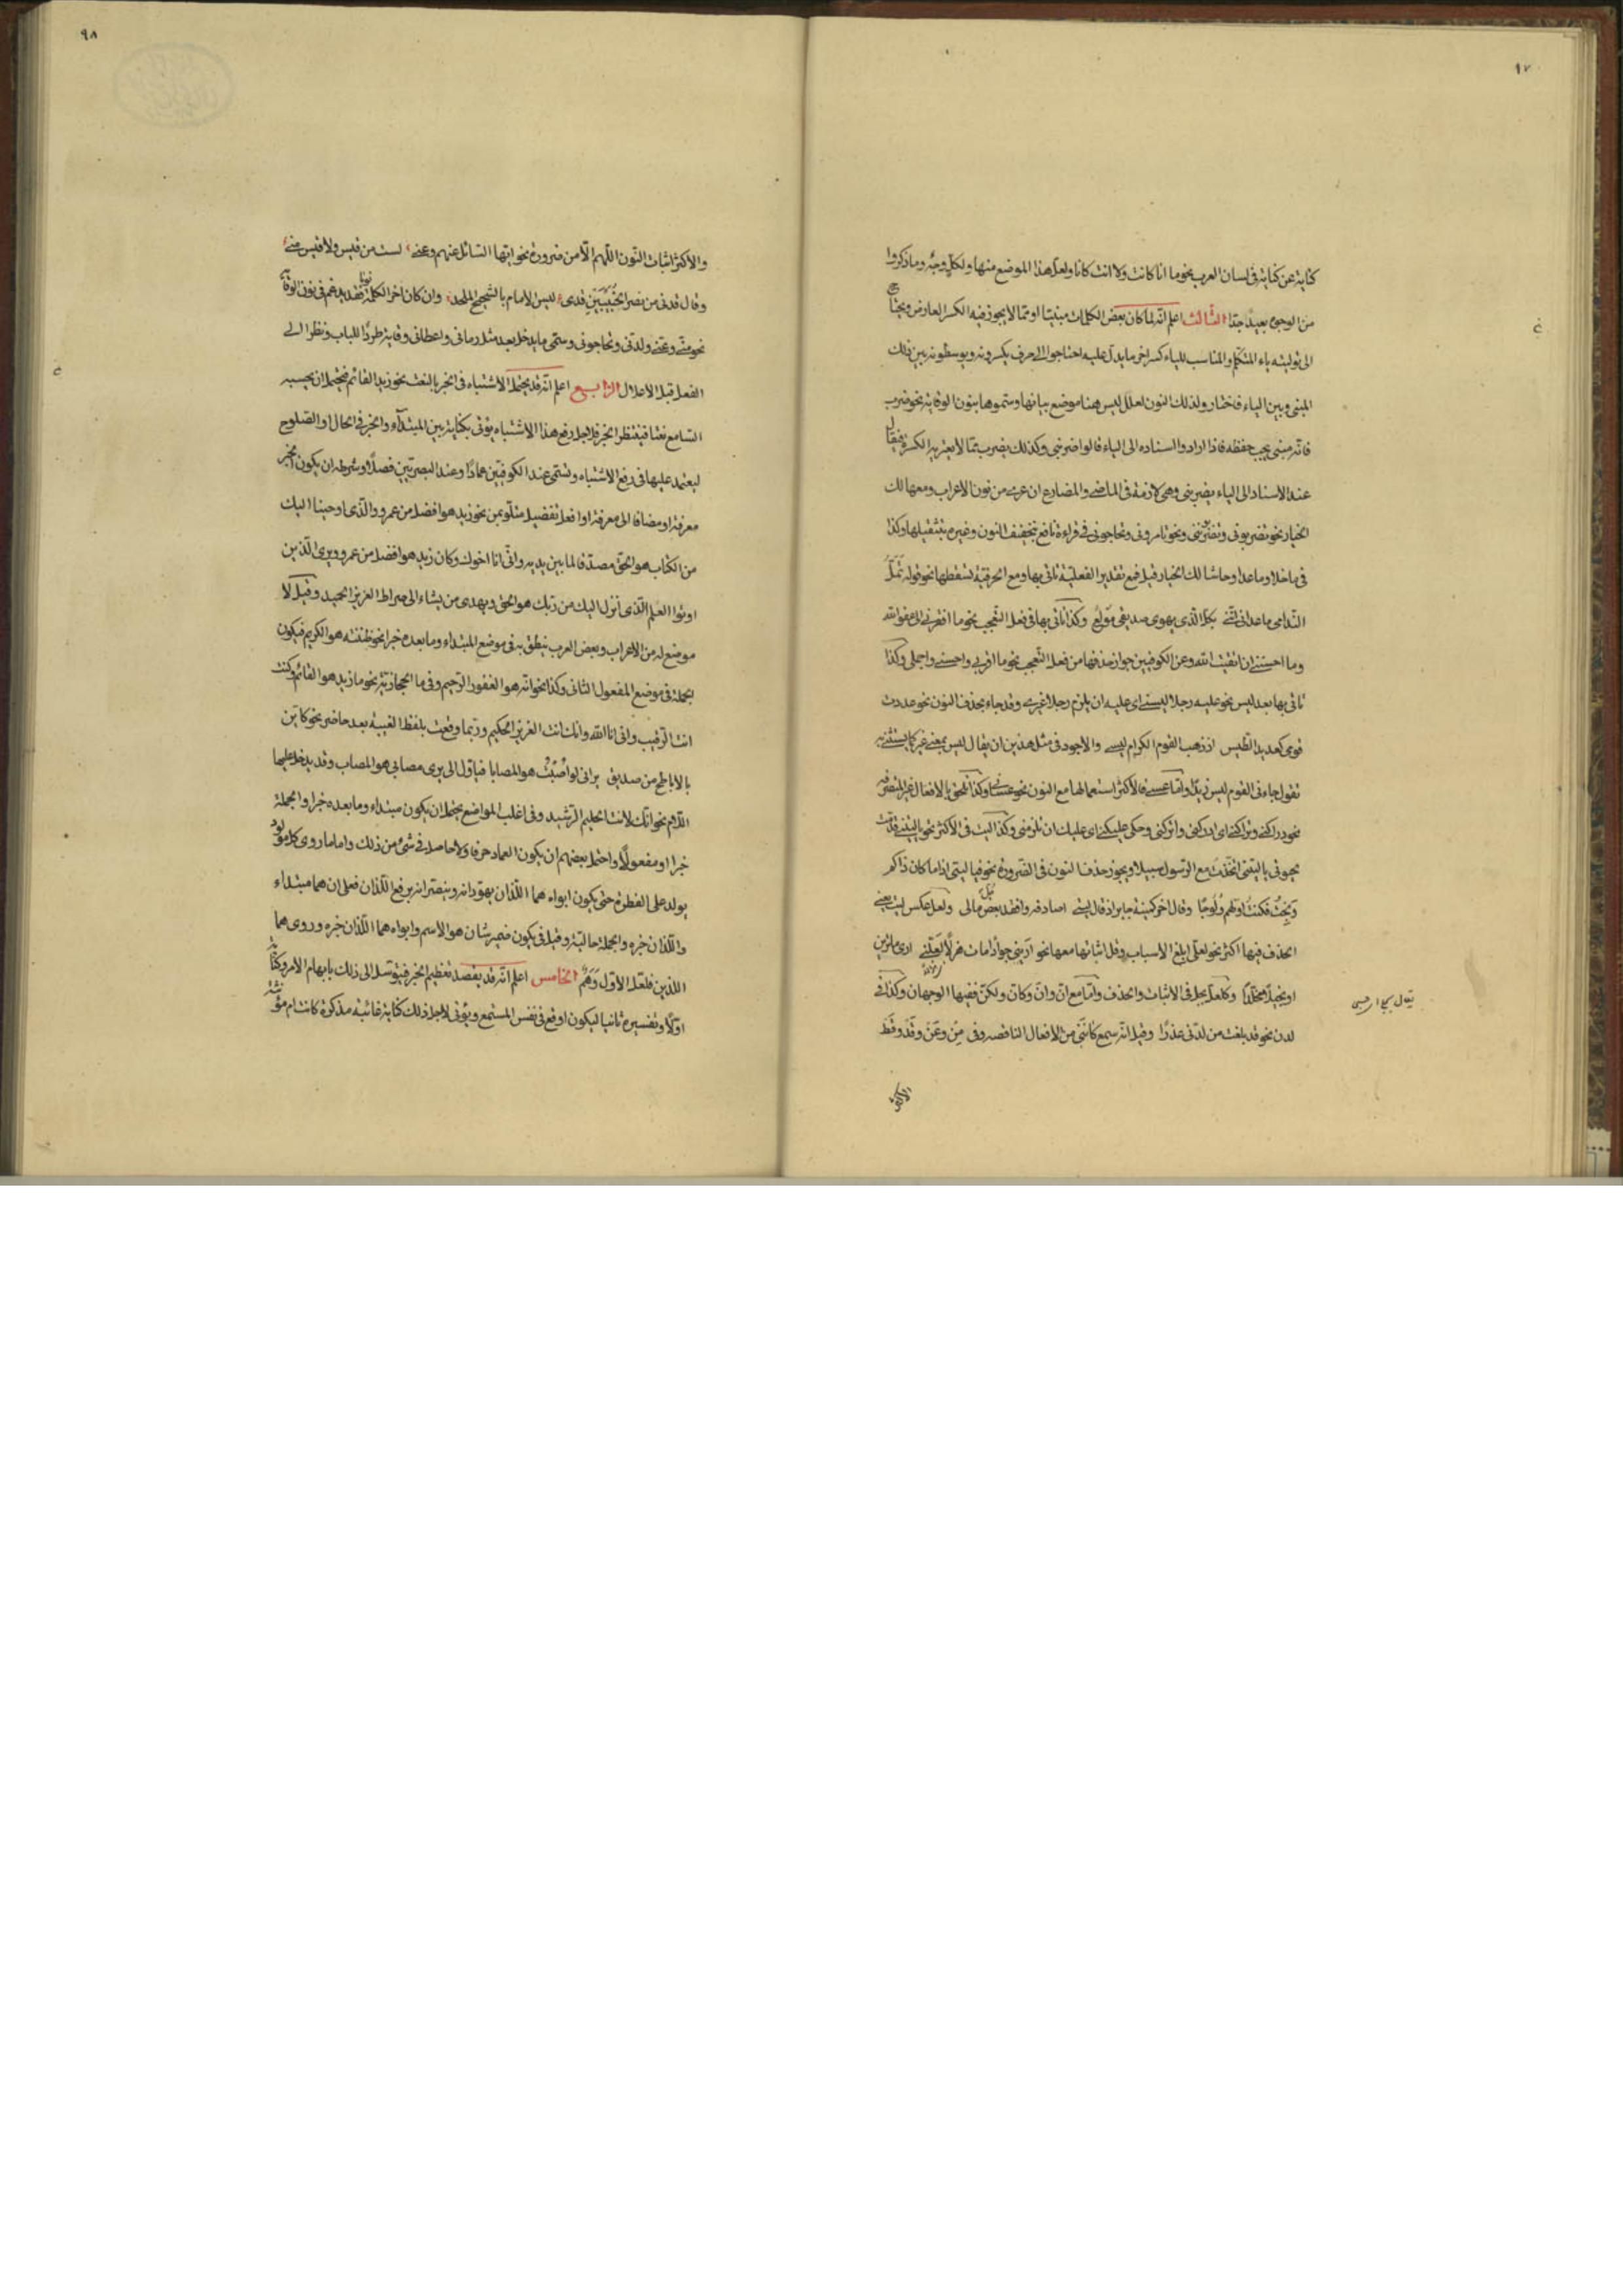 ٩٧
كناية عن كناية فى لسان العرب نحو ما انا كانت ولا انت كانا ولعل هذا الموضع منها ولكل وجه وما ذكروا
من الوجوه بعيد جدا الثالث اعلم انه لما كان بعض الكلمات مبنيا او مما لا يجوز فيه الكسر العارض ويحتاج
الى توليته ياء المتكلم والمناسب للياء كسر اخر ما يدل عليه احتاجوا الى حرف يكسرونه ويوسطونه بين ذلك
المبنى وبين الياء فاختار ولذلك النون لعلل ليس هنا موضع بيانها وسموها بنون الوقاية نحو ضرب
فانه مبنى يجب حفظه فاذا اراد والسناده الى الياء قالوا ضربنى وكذلك يضرب مما لا يعتريه الكسرة فيقال
عند الاسناد الى الياء يضربنى وهى لازمة فى الماضى والمضارع ان عرى من نون الاعراب ومعها لك
الخيار نحو تضربونى وتضربوننى ونحو تامرونى وتحاجونى فى قراءة نافع بتخفيف النون وغيره بتثقيلها وكذا
فى ما خلا وما عدا وحاشا لك الخيار قيل فمع تقدير الفعلية تاتى بها ومع الحرفية تسقطها نحو قوله تمل
الندامى ما عدانى فاننى بكل الذى يهوى صديقى مولع وكذا تاتى بها فى فعل التعجب نحو ما افقرنى الى عفو الله
وما احسننى ان اتقيت الله وعن الكوفيين جواز حذفها من فعل التعجب نحو ما اقربى واحسنى واجملى وكذا
تاتى بها بعد ليس نحو عليه رجلا ليسنى اى عليه ان يلزم رجلا غيرى وقد جاء بحذف النون نحو عددت
قومى كعديد الطيس اذ ذهب القوم الكرام ليسى والاجود فى مثل هذين ان يقال ليس بمعنى غير كما يستثنى به
تقول جاءنى القوم ليس زيدا واما عسى فالاكثر استعمالها مع النون نحو عسانى وكذا تلحق بالافعال غير المتصرفه
نحو دراكنى وتراكنى اى ادركنى واتركنى وحكى عليكنى اى عليك ان تلزمنى وكذا ليت فى الاكثر نحو يا ليتنى قدمت
لحيوتى يا ليتنى اتخذت مع الرسول سبيلا ويجوز حذف النون فى الضرورة نحو فيا ليتى اذا ما كان ذاكم
ولجت فكنت اولهم ولوجا وقال اخر كمنية جابر اذ قال ليتى اصادفه وافقد بعض مالى ولعل عكس ليت يعنى
الحذف فيها اكثر نحو لعلى ابلغ الاسباب وقل اثباتها معها نحو ارينى جوادا مات هزلا لعلنى ارى ما ترين
او بخيلا مخلدا وكلعل بجل فى الاثبات والحذف واما مع ان وان وكان ولكن ففيها الوجهان وكذا فى
لدن نحو قد بلغت من لدنى عذرا وقيل انه سمع كاننى من الافعال الناقصه وفى من وعن وقد وقط
الاكثر
٩٨
والاكثر اثبات النون اللهم الا من ضرورة نحو ايها السائل عنهم وعنى لست من قيس ولا قيس منى
وقال قدنى من نصر الخبيبين قدى ليس الامام بالشحيح الملحد وان كان اخر الكلمة نونا فقد يدغم فى نون الوقاية
نحو منى وعنى ولدنى وتحاجونى وسمى ما يدخل بعد مثل رمانى واعطانى وقاية طردا للباب ونظرا الى
الفعل قبل الاعلال الرابع اعلم انه قد يحتمل الاشتباه فى الخبر بالنعت نحو زيد القائم فيحتمل ان يحسبه
السامع نعتا فينتظر الخبر فلاجل رفع هذا الاشتباه يؤتى بكناية بين المبتداء والخبر فى الحال او الصلوح
ليعتمد عليها فى رفع الاشتباه وتسمى عند الكوفيين عمادا وعند البصريين فصلا وشرطه ان يكون الخبر
معرفة او مضافا الى معرفة او افعل تفضيل متلو بمن نحو زيد هو افضل من عمرو والذى اوحينا اليك
من الكتاب هو الحق مصدقا لما بين يديه وانى انا اخوك وكان زيد هو افضل من عمرو ويرى الذين
اوتوا العلم الذى انزل اليك من ربك هو الحق ويهدى من يشاء الى صراط العزيز الحميد وقيل لا
موضع له من الاعراب وبعض العرب ينطق به فى موضع المبتداء وما بعده خبرا نحو ظننته هو الكريم فيكون
الجملة فى موضع المفعول الثانى وكذا نحو انه هو الغفور الرحيم وفى ما الحجازية نحو ما زيد هو القائم وكنت
انت الرقيب وانى انا الله وانك انت العزيز الحكيم وربما وقعت بلفظ الغيبة بعد حاضر نحو كاين
بالاباطح من صديق يرانى لو اصبت هو المصابا فياول الى يرى مصابى هو المصاب وقد يدخل عليها
اللام نحو انك لانت الحليم الرشيد وفى اغلب المواضع يحتمل ان يكون مبتداء وما بعده خبرا والجملة
خبرا او مفعولا واحتمل بعضهم ان يكون العماد حرفا ولا حاصل فى شئ من ذلك واما ما روى كل مولود
يولد على الفطرة حتى يكون ابواه هما اللذان يهودانه وينصرانه برفع اللذان فعلى ان هما مبتداء
واللذان خبره والجملة حالية وقيل فى يكون ضمير شان هو الاسم وابواه هما اللذان خبره وروى هما
اللذين فلعل الاول وهم الخامس اعلم انه قد يقصد تعظيم الخبر فيتوسل الى ذلك بابهام الامر وكنايته
اولا وتفسيره ثانيا ليكون اوقع فى نفس المستمع ويؤتى لاجل ذلك كناية غائبة مذكرة كانت ام مؤنثة